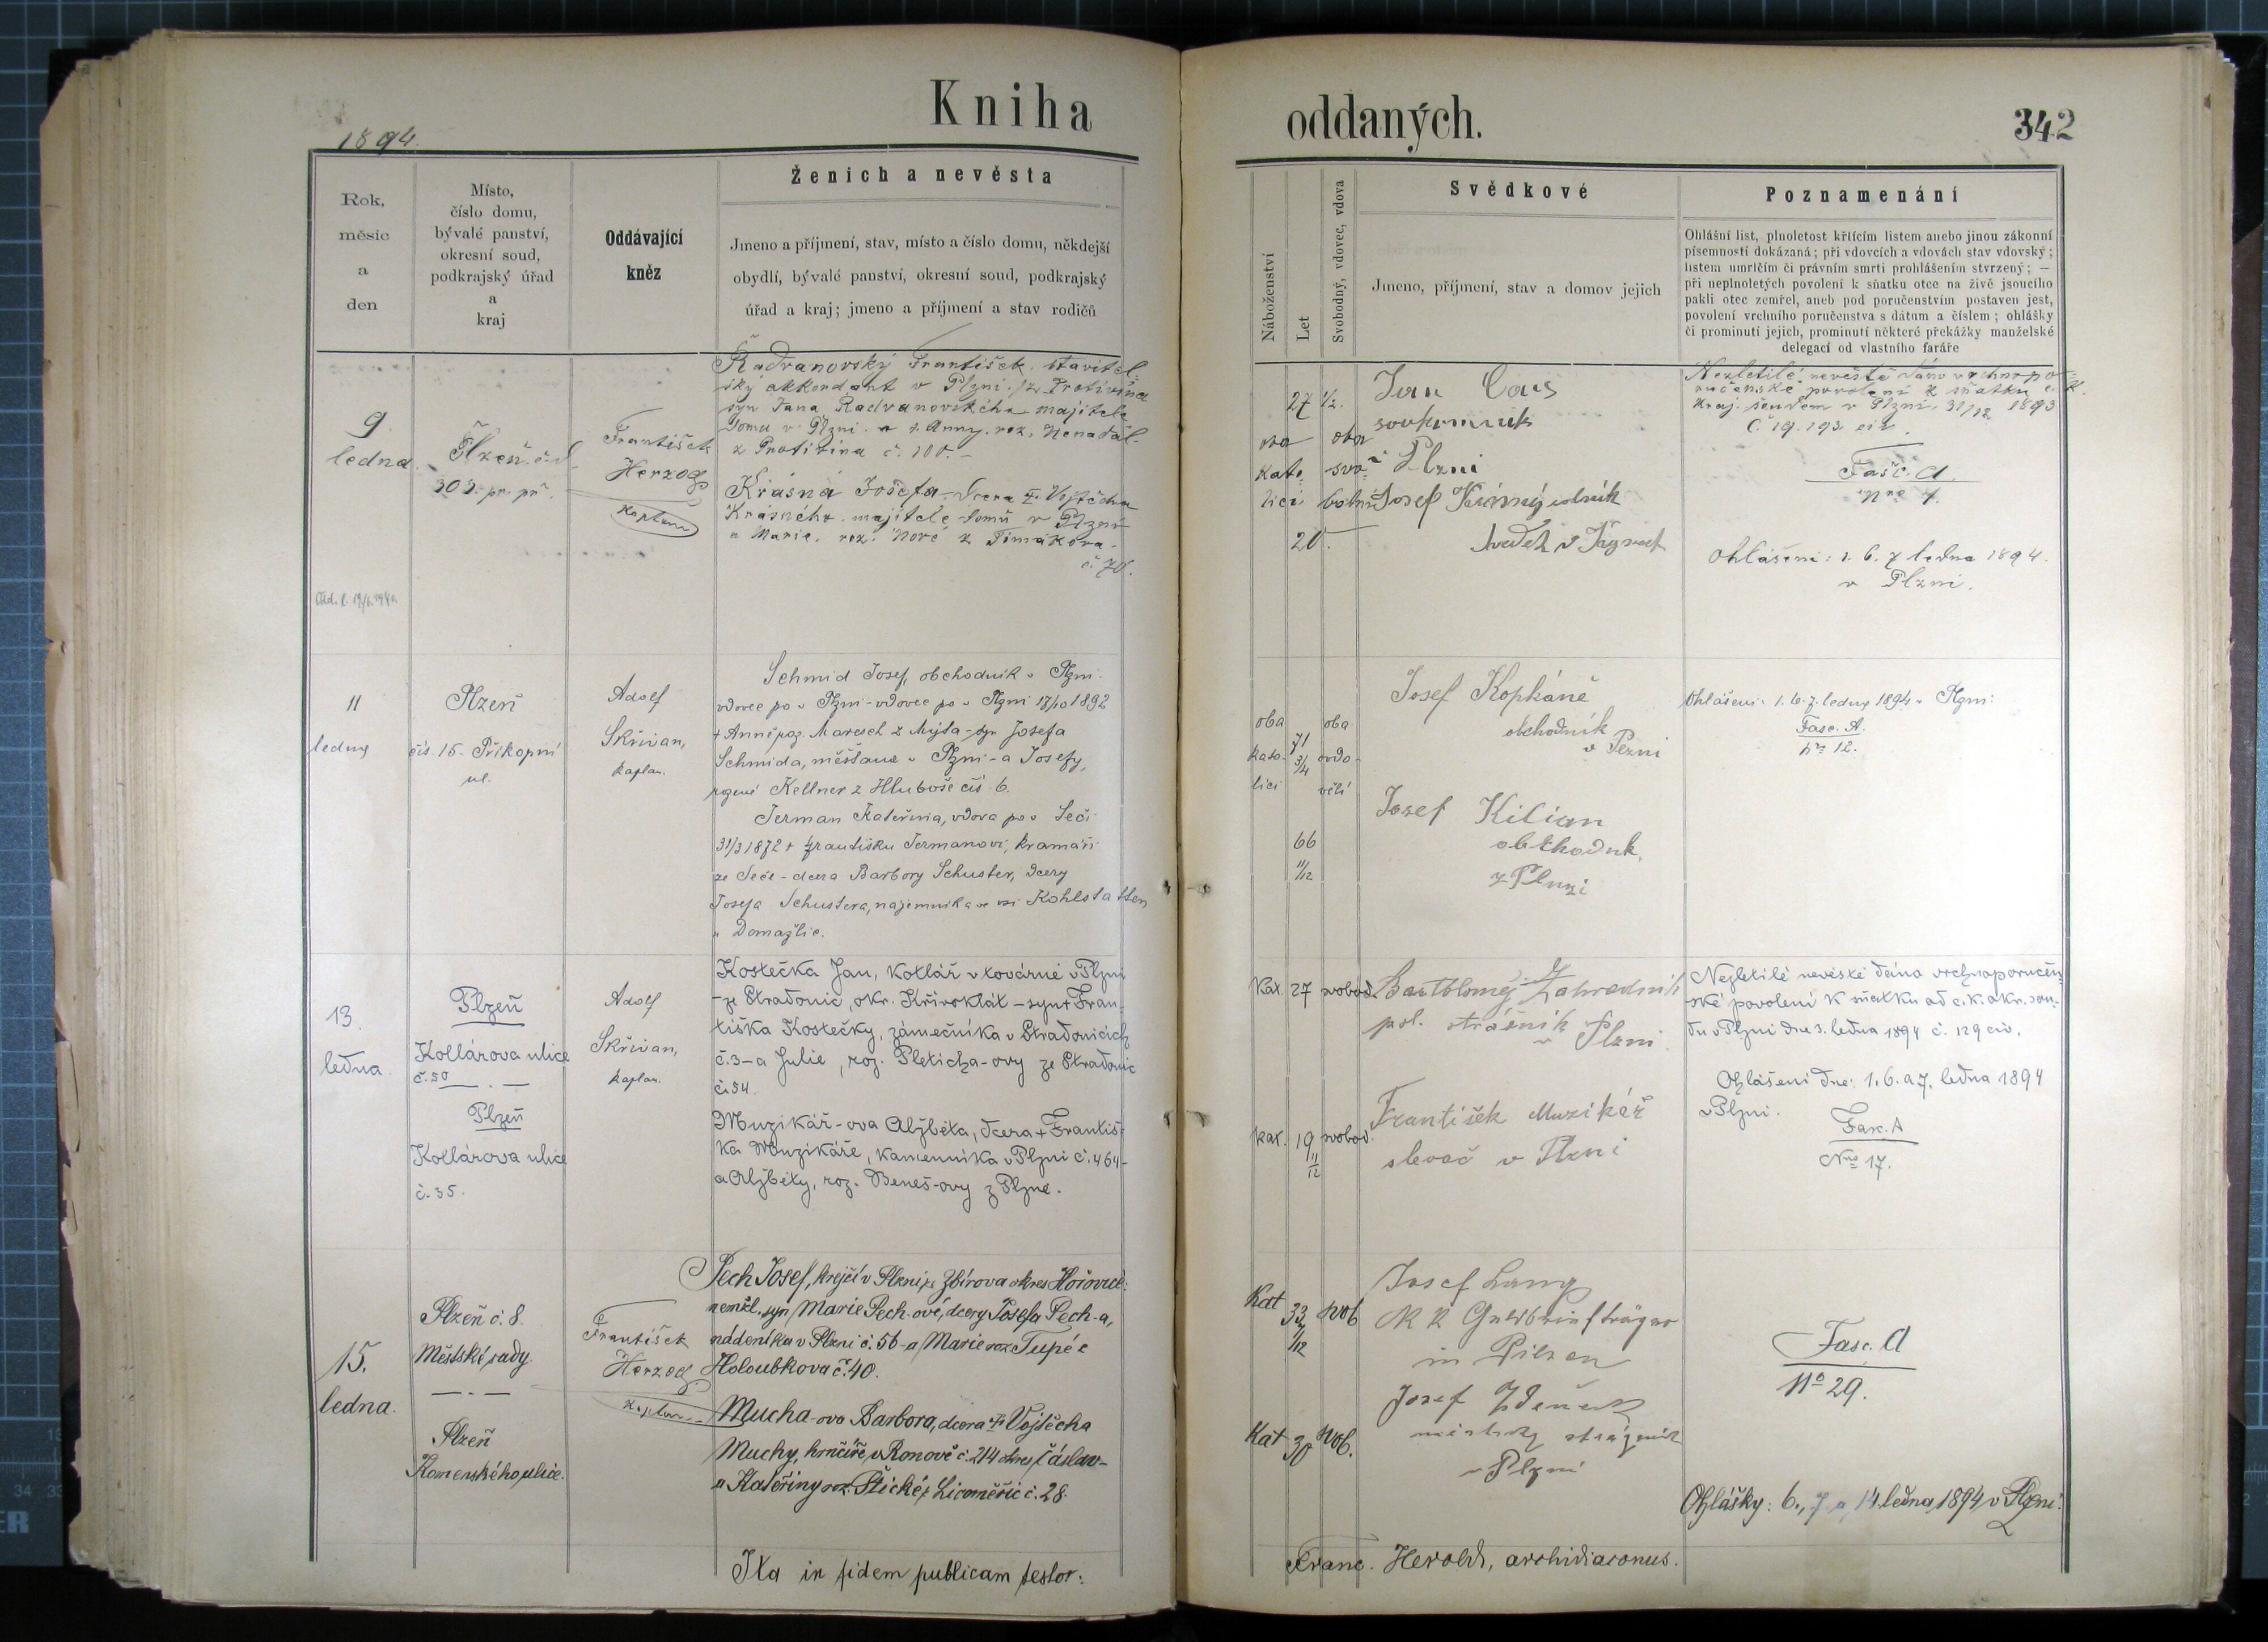 Kniha
oddaných.
342
1894.
Rok,
měsíc
a
den
Místo,
číslo domu,
bývalé panství,
okresní soud,
podkrajský úřad
a
kraj
Oddávající
kněz
Ženich a nevěsta
Jmeno a příjmení, stav, místo a číslo domu, někdejší
obydlí, bývalé panství, okresní soud, podkrajský
úřad a kraj; jmeno a příjmení a stav rodičů
Náboženství
Let
Svobodný, vdovec, vdova
Svědkové
Jmeno, příjmení, stav a domov jejich
Poznamenání
Ohlášní list, plnoletost křticím listem anebo jinou zákonní
písemností dokázaná; při vdovcích a vdovách stav vdovský;
listem umrlčím či právním smrti prohlášením stvrzený; —
při neplnoletých povolení k sňatku otce na živě jsoucího
pakli otec zemřel, aneb pod poručenstvím postaven jest,
povolení vrchního poručenstva s dátum a číslem; ohlášky
či prominutí jejich, prominutí některé překážky manželské
delegací od vlastního faráře
9.
ledna.
Plzeň č. d.
303. pr. př.
František
Herzog
kaplan
Řadvanovský František, stavitel-
ský akkordant v Plzni. /z Protivína
syn Jana Řadvanovského majitele
domu v Plzni. a Anny. roz. Nenadál
z Protivína č. 100.-
Krásná Josefa. dcera † Vojtěcha
Krásného. majitele domu v Plzni
a Marie. roz. Nové z Timákova-
č. 70.
27 1/2.
oba oba
kato- svo-
líci bodní
20.
Jan
soukromník
v Plzni
Josef Krásný rolník
Nezletilé nevěstě dáno vrchnopo-
ručenské povolení k sňatku c. k.
kraj. soudem v Plzni. 31/12 1893
č. 19.193 civ.
Fasc. A.
Nro 7.
Ohlášení: 1. 6. 7 ledna 1894.
v Plzni.
11
ledna
Plzeň
čís. 15. Příkopní
ul.
Adolf
Skřivan,
kaplan.
Schmid Josef, obchodník v Plzni.
vdovec po v Plzni - vdovec po v Plzni 17/10 1892
† Anně roz. Maresch z Mýta - syn Josefa
Schmida, měšťana v Plzni - a Josefy,
rozené Kellner z Hluboše čís. 6.
Terman Kateřina, vdova po v Seči
31/3 1872 † Františku Termanovi, kramáři
ze Seče - dcera Barbory Schuster, dcery
Josefa Schustera, nájemníka ve vsi Kohlstatten
u Domažlic.
oba oba
kato- 71 3/4 ovdo-
líci věli
66
11/12
Josef Kopkáně
obchodník
v Plzni
Josef Kilian
obchodník,
z Plnzi
Ohlášení: 1. 6. 7. ledna 1894 v Plzni:
Fasc. A.
Nro 12.
13.
ledna
Plzeň
Kollárova ulice
č. 50
Plzeň
Kollárova ulice
č. 35.
Adolf
Skřivan,
kaplan.
Kostečka Jan, kotlář v továrně v Plzni
- ze Stradonic, okr. Křivoklát - syn † Fran-
tiška Kostečky, zámečníka v Stradonicích
č. 3 - a Julie, roz. Pleticha-ovy ze Stradonic
č. 54.
Muzikář-ova Alžběta, dcera † Františ-
ka Muzikáře, kameníka v Plzni č. 464 -
a Alžběty, roz. Beneš-ovy z Plzně.
Kat. 27 svobod.
kat. 19 11/12 svobod.
Bartoloměj Zahradník
pol. strážník
v Plzni.
František Muzikář
slevač v Plzni
Nezletilé nevěstě dána vrchnoporučen-
ské povolení k sňatku od c. k. okr. sou-
du v Plzni dne 3. ledna 1894 č. 129 civ.
Ohlášení dne: 1. 6. a 7. ledna 1894
v Plzni.
Fasc. A
Nro 17.
15.
ledna.
Plzeň č. 8.
Městské sady.
Plzeň
Komenského ulice.
František
Herzog
kaplan
Pech Josef, krejčí v Plzni, ze Zbirova okres Hořovice
nemžl. syn Marie Pech-ové, dcery Josefa Pech-a,
nádeníka v Plzni č. 56 - a Marie roz. Tupé z
Holoubkova č. 40.
Mucha-ova Barbora, dcera † Vojtěcha
Muchy, hrnčíře v Ronově č. 214 okres Čáslav -
a Kateřiny roz. Štické z Licoměřic č. 28.
Kat 33 7/12 svob
Kat 30 svob.
Josef Lang
in Pilsen
Josef
městský strážník
v Plzni
Fasc. A
No 29.
Ohlášky: 6., 7. a 14. ledna 1894 v Plzni.
Ita in fidem publicam testor:
Franc. Herold, archidiaconus.